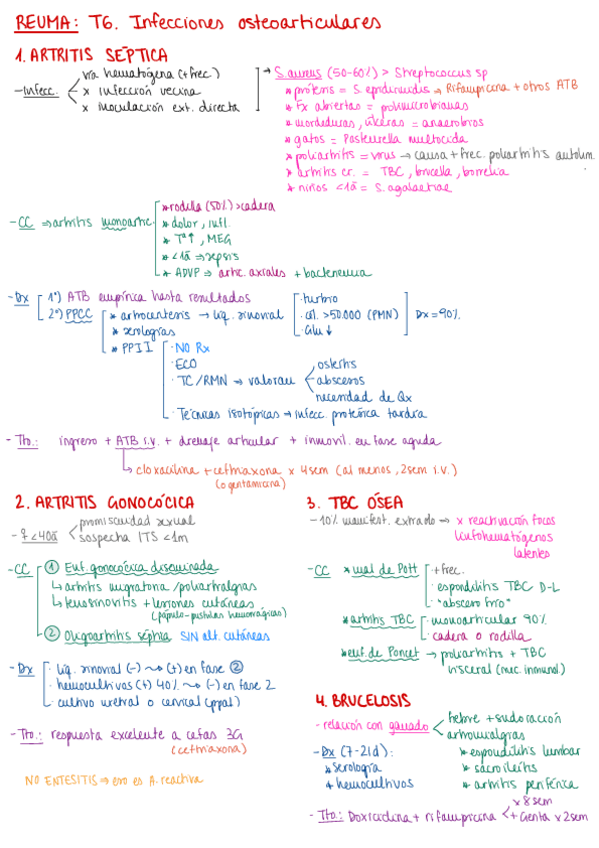 REUMA: T6. Infecciones osteoarticulares
1. ARTRITIS SÉPTICA
- Infecc.
vía hematógena (+ frec)
x infección vecina
x inoculación ext. directa
→ S. aureus (50-60%) > Streptococcus sp
* prótesis = S. epidermidis → Rifampicina + otros ATB
* Fx abiertas = polimicrobianas
* mordeduras, úlceras = anaerobios
* gatos = Pasteurella multocida
* poliartritis = virus → causa + frec. poliartritis autolim.
* artritis cr. = TBC, brucella, borrelia
* niños <1a = S. agalactiae
- CC ⇒ artritis monoartic.
* rodilla (50%) > cadera
* dolor, infl.
* Tª↑, MEG
* <1a ⇒ sepsis
* ADVP ⇒ artic. axiales + bacteriemia
- Dx
1º) ATB empírica hasta resultados
2º) PPCC
* artrocentesis → líq. sinovial
· turbio
· cél. >50.000 (PMN)
· Glu ↓
Dx = 90%
* serologías
* PPII
· NO Rx
· ECO
· TC/RMN → valorar
osteítis
abscesos
necesidad de Qx
· Técnicas isotópicas → infecc. protésica tardía
- Tto.: ingreso + ATB i.v. + drenaje articular + inmovil. en fase aguda
↳ cloxacilina + ceftriaxona x 4sem (al menos, 2sem i.v.)
(o gentamicina)
2. ARTRITIS GONOCÓCICA
- ♀ <40a
promiscuidad sexual
sospecha ITS <1m
- CC
① Enf. gonocócica diseminada
↳ artritis migratoria / poliartralgias
↳ tenosinovitis + lesiones cutáneas
(pápulo-pústulas hemorrágicas)
② Oligoartritis séptica SIN alt. cutáneas
- Dx
· líq. sinovial (-) ⇝ (+) en fase ②
· hemocultivos (+) 40% ⇝ (-) en fase 2
· cultivo uretral o cervical (ppal)
- Tto.: respuesta excelente a cefas 3G
(ceftriaxona)
NO ENTESITIS ⇒ eso es A. reactiva
3. TBC ÓSEA
- 10% manifest. extrado → x reactivación focos
linfohematógenos
latentes
- CC
* mal de Pott
· + frec.
· espondilitis TBC D-L
· "absceso frío"
* artritis TBC
· monoarticular 90%
· cadera o rodilla
* enf. de Poncet → poliartritis + TBC
visceral (mec. inmunol.)
4. BRUCELOSIS
- relación con ganado
fiebre + sudoración
artromialgias
- Dx (7-21d):
* serología
* hemocultivos
* espondilitis lumbar
* sacroileítis
* artritis periférica
- Tto: Doxiciclina + rifampicina
x 8sem
+ Genta x 2sem